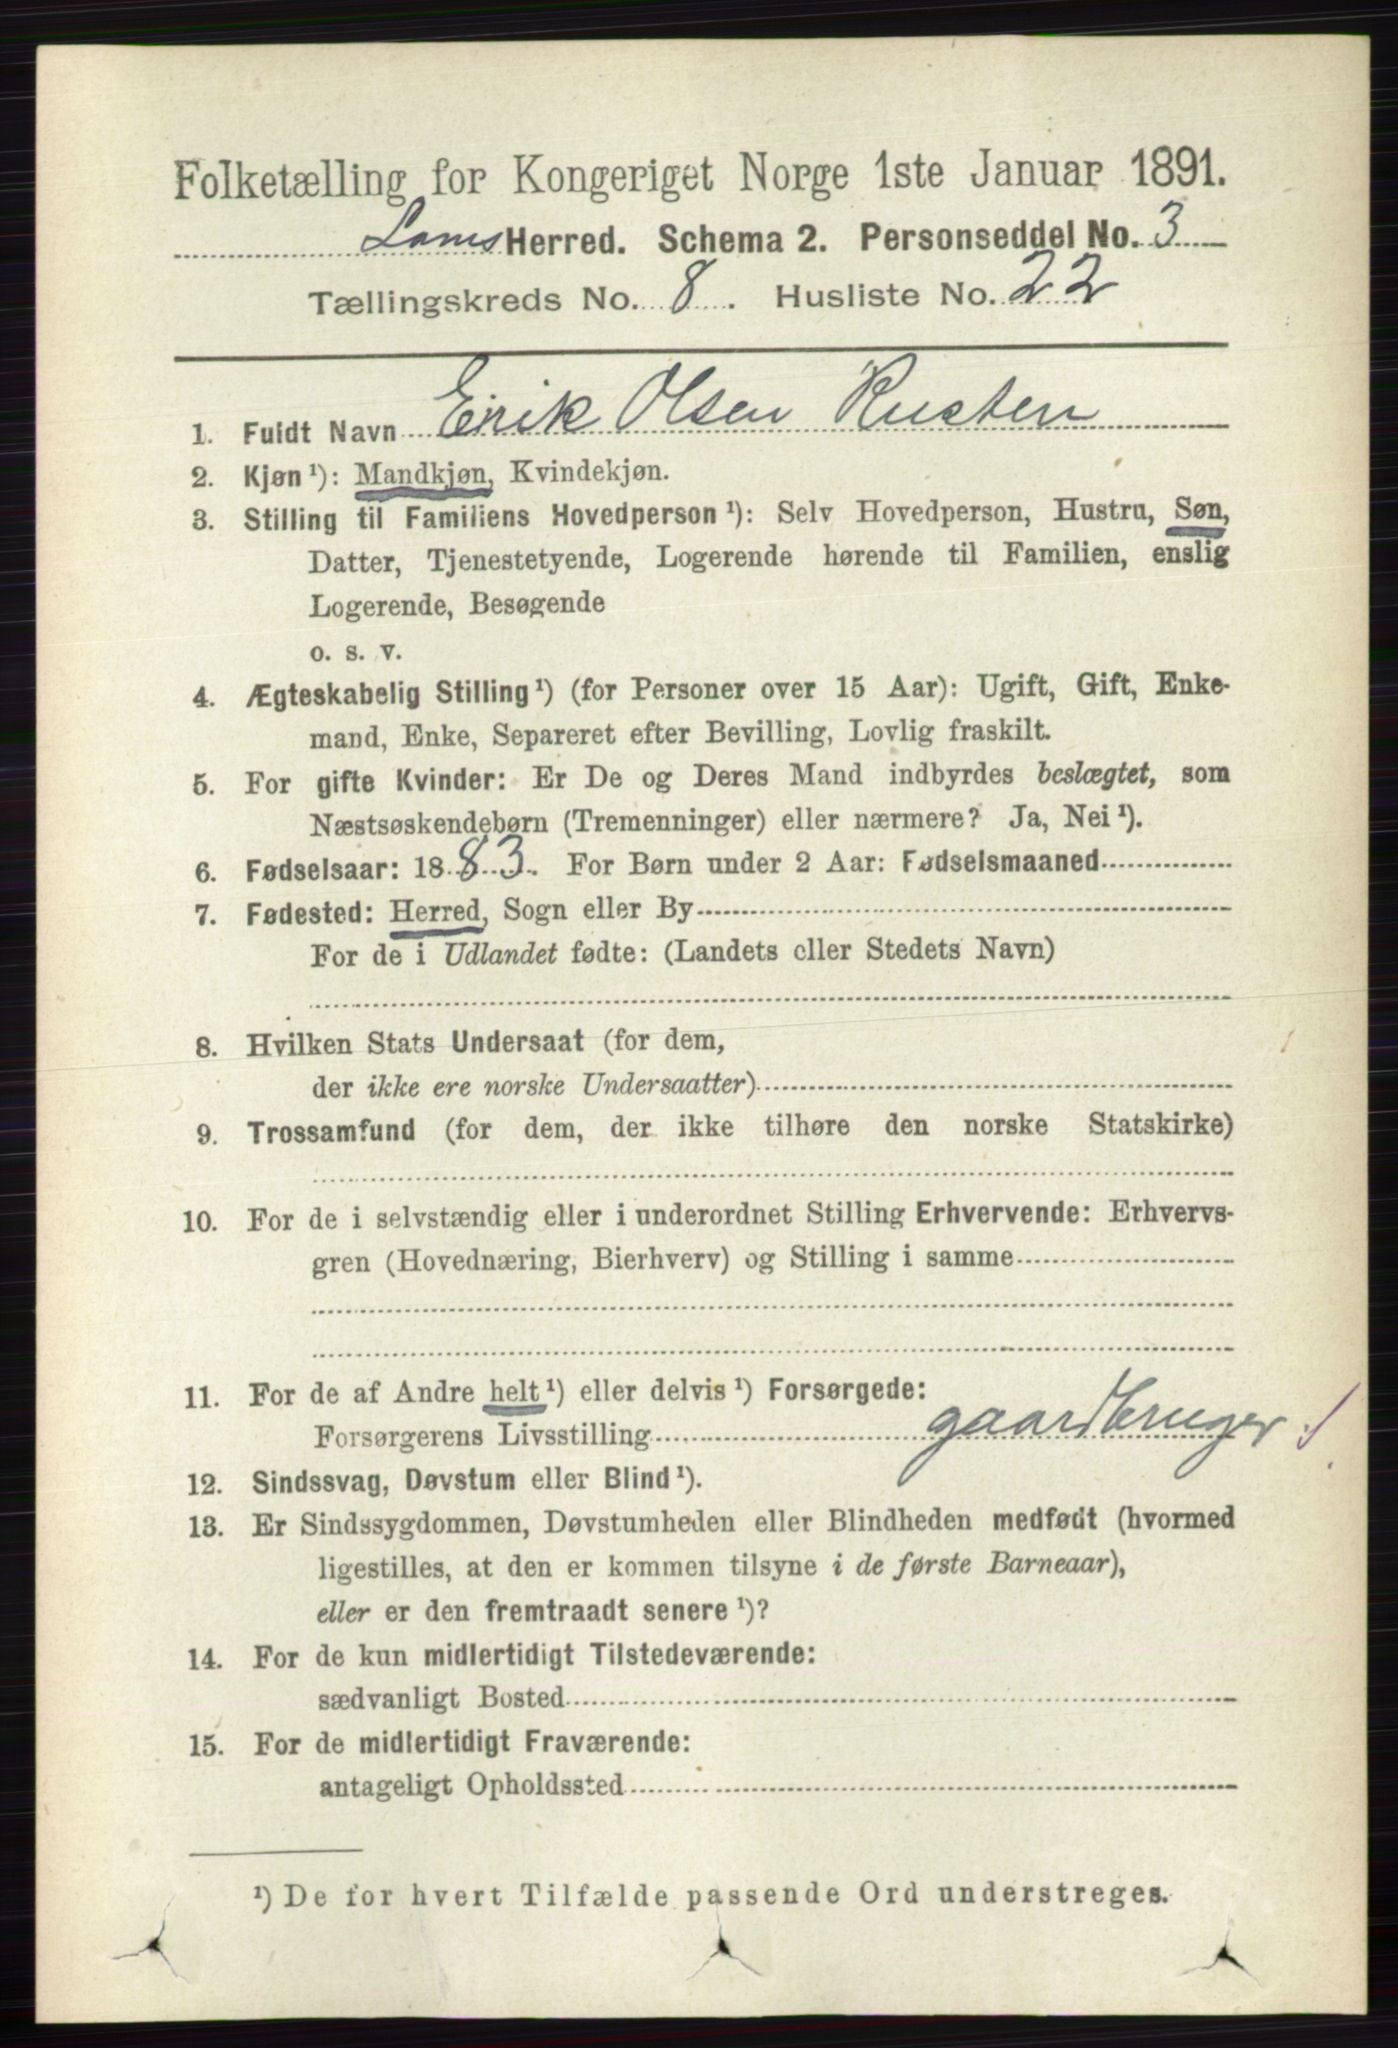 Folketælling for Kongeriget Norge 1ste Januar 1891.
Loms Herred. Schema 2. Personseddel No. 3
Tællingskreds No. 8. Husliste No. 22
1. Fuldt Navn Erik Olsen Rusten
2. Kjøn ¹): Mandkjøn, Kvindekjøn.
3. Stilling til Familiens Hovedperson ¹): Selv Hovedperson, Hustru, Søn,
Datter, Tjenestetyende, Logerende hørende til Familien, enslig
Logerende, Besøgende
o. s. v.
4. Ægteskabelig Stilling ¹) (for Personer over 15 Aar): Ugift, Gift, Enke-
mand, Enke, Separeret efter Bevilling, Lovlig fraskilt.
5. For gifte Kvinder: Er De og Deres Mand indbyrdes beslægtet, som
Næstsøskendebørn (Tremenninger) eller nærmere? Ja, Nei ¹).
6. Fødselsaar: 1883. For Børn under 2 Aar: Fødselsmaaned
7. Fødested: Herred, Sogn eller By
For de i Udlandet fødte: (Landets eller Stedets Navn)
8. Hvilken Stats Undersaat (for dem,
der ikke ere norske Undersaatter)
9. Trossamfund (for dem, der ikke tilhøre den norske Statskirke)
10. For de i selvstændig eller i underordnet Stilling Erhvervende: Erhvervs-
gren (Hovednæring, Bierhverv) og Stilling i samme
11. For de af Andre helt ¹) eller delvis ¹) Forsørgede:
Forsørgerens Livsstilling gaardbruger
12. Sindssvag, Døvstum eller Blind ¹).
13. Er Sindssygdommen, Døvstumheden eller Blindheden medfødt (hvormed
ligestilles, at den er kommen tilsyne i de første Barneaar),
eller er den fremtraadt senere ¹)?
14. For de kun midlertidigt Tilstedeværende:
sædvanligt Bosted
15. For de midlertidigt Fraværende:
antageligt Opholdssted
¹) De for hvert Tilfælde passende Ord understreges.